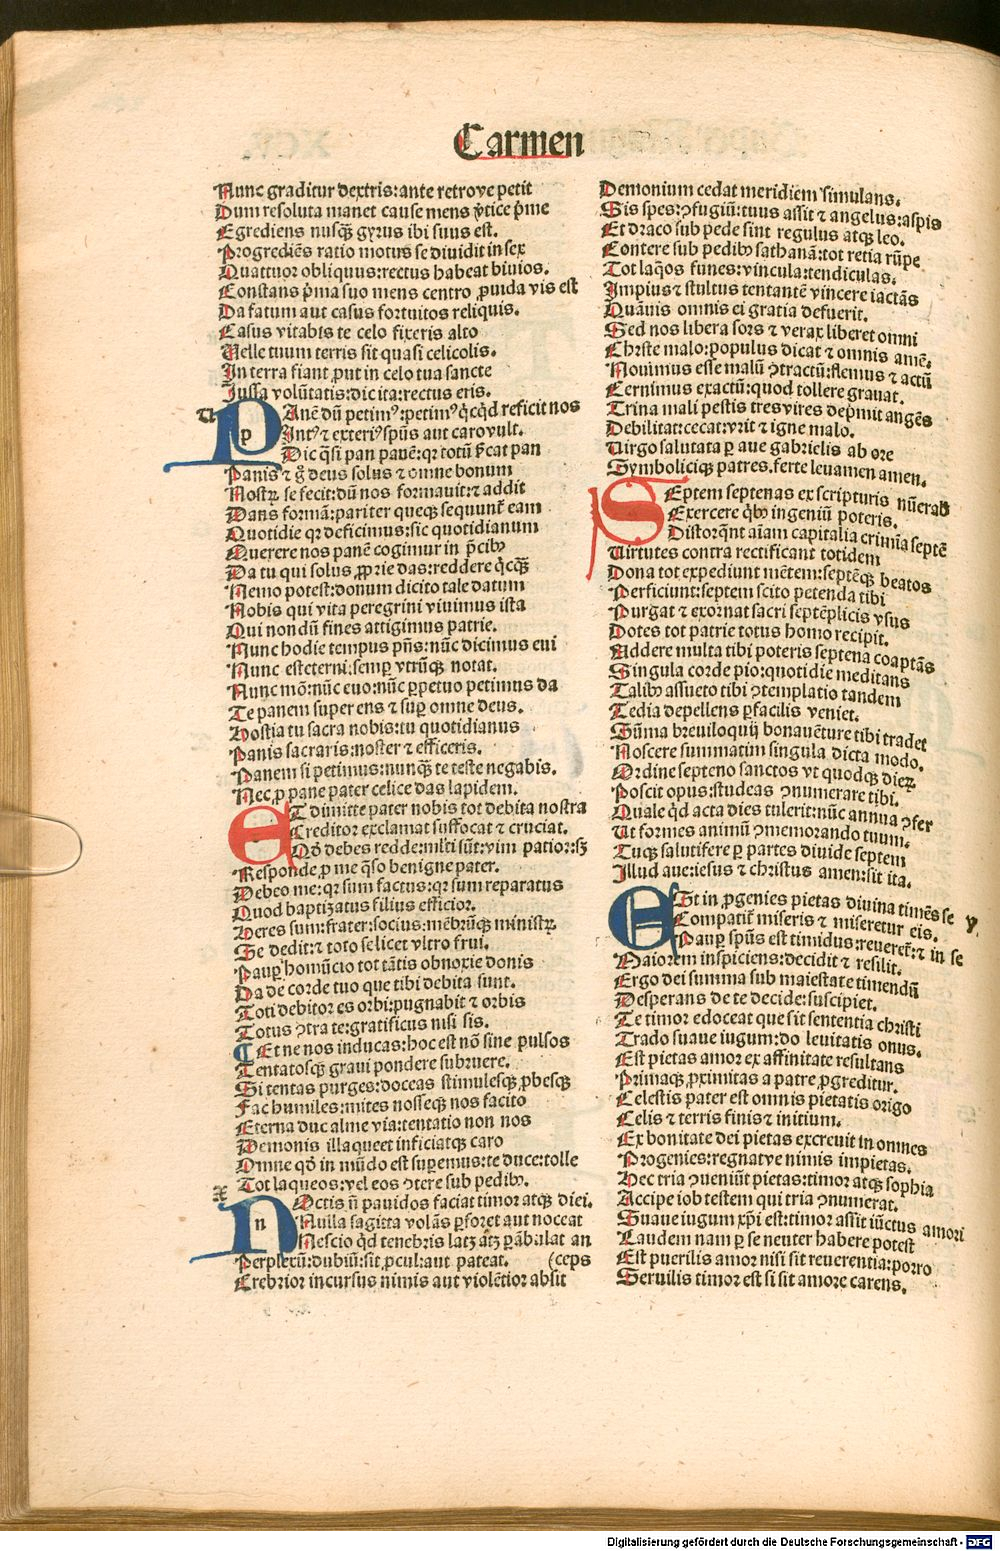 Carmen
Nunc graditur dextris: ante retrove petit
Dum resoluta manet cause mens ṽtice p̃me
Egrediens nusq̃ꝫ gyrus ibi suus est.
Progrediẽs ratio motus se diuidit in sex
Quattuor obliquus: rectus habeat biuios.
Constans p̃ma suo mens centro ꝓuida vis est
Da fatum aut casus fortuitos reliquis.
Casus vitabis te celo fixeris alto
Uelle tuum terris sit quasi celicolis.
In terra fiant ꝓut in celo tua sancte
Jussa volũtatis: dic ita: rectus eris.
PAnẽ dũ petimꝰ: petimꝰ q̃cq̃d reficit nos
p Intꝰ ⁊ exteriꝰ sp̃us aut caro vult.
Dic q̃si pan pauẽ: qꝛ totũ p̃cat pan
Panis ⁊ g̃ deus solus ⁊ omne bonum
Nostꝝ se fecit: dũ nos formauit: ⁊ addit
Dans formã: pariter queqꝫ sequunt̃ eam
Quotidie qꝛ deficimus: sic quotidianum
Querere nos panẽ cogimur in p̃cibꝰ
Da tu qui solus ꝓprie das: reddere q̃cq̃ꝫ
Nemo potest: donum dicito tale datum
Nobis qui vita peregrini viuimus ista
Qui non dũ fines attigimus patrie.
Nunc hodie tempus p̃ns: nũc dicimus eui
Nunc est eterni: semꝑ vtrũqꝫ notat.
Nunc mõ: nũc euo: nũc ꝑpetuo petimus da
Te panem super ens ⁊ suꝑ omne deus.
Hostia tu sacra nobis: tu quotidianus
Panis sacraris: noster ⁊ efficeris.
Panem si petimus: nunq̃ꝫ te teste negabis.
Nec ꝓ pane pater celice das lapidem.
ET dimitte pater nobis tot debita nostra
Creditor exclamat suffocat ⁊ cruciat.
Qõ debes redde: mlti sũt: vim patior: sꝫ
Responde ꝓ me q̃so benigne pater.
Debeo me: qꝛ sum factus: qꝛ sum reparatus
Quod baptizatus filius efficior.
Heres sum: frater: socius: mẽbrũqꝫ ministꝝ
Se dedit: ⁊ toto se licet vltro frui.
Pauꝑ homũcio tot tãtis obnoxie donis
Da de corde tuo que tibi debita sunt.
Toti debitor es orbi: pugnabit ⁊ orbis
Totus ꝯtra te: gratificus nisi sis.
Et ne nos inducas: hoc est nõ sine pulsos
Tentatosqꝫ graui pondere subruere.
Si tentas purges: doceas stimulesqꝫ ꝓbesqꝫ
Fac humiles: mites nosseqꝫ nos facito
Eterna duc alme via: tentatio non nos
Demonis illaqueet inficiatqꝫ caro
Omne qõ in mũdo est suꝑemus: te duce: tolle
Tot laqueos: vel eos ꝯtere sub pedibꝰ.
x
NOctis ñ pauidos faciat timor atqꝫ diei.
n Nulla sagitta volãs ꝑforet aut noceat
Nescio q̃d tenebris latꝫ atꝫ ꝑãbulat an
Perplexũ: dubiũ: sit ꝓcul: aut pateat. (ceps
Crebrior incursus nimis aut violẽtior absit
Demonium cedat meridiem simulans.
Sis spes: ꝯfugiũ: tuus assit ⁊ angelus: aspis
Et draco sub pede sint regulus atqꝫ leo.
Contere sub pedibꝰ sathanã: tot retia rũpe
Tot laq̃os funes: vincula: tendiculas.
Impius ⁊ stultus tentantẽ vincere iactãs
Quãuis omnis ei gratia defuerit.
Sed nos libera sors ⁊ verax liberet omni
Christe malo: populus dicat ⁊ omnis amẽ.
Nouimus esse malũ ꝯtractũ: flemus ⁊ actũ
Cernimus exactũ: quod tollere grauat.
Trina mali pestis tres vires dep̃mit angẽs
Debilitat: cecat: vrit ⁊ igne malo.
Uirgo salutata ꝑ aue gabrielis ab ore
Symboliciqꝫ patres, ferte leuamen amen.
SEptem septenas ex scripturis nũerabis
Exercere q̃bꝰ ingeniũ poteris.
Distorq̃nt aĩam capitalia crimĩa septẽ
Uirtutes contra rectificant totidem
Dona tot expediunt mẽtem: septẽqꝫ beatos
Perficiunt: septem scito petenda tibi
Purgat ⁊ exornat sacri septẽplicis vsus
Dotes tot patrie totus homo recipit.
Addere multa tibi poteris septena coaptãs
Singula corde pio: quotidie meditans
Talibꝰ assueto tibi ꝯtemplatio tandem
Tedia depellens ꝑfacilis veniet.
Sũma breuiloquij bonauẽture tibi tradet
Noscere summatim singula dicta modo.
Ordine septeno sanctos vt quodqꝫ dieꝝ
Poscit opus: studeas ꝯnumerare tibi.
Quale q̃d acta dies tulerit: nũc annua ꝯfer
Ut formes animũ ꝯmemorando tuum.
Tuqꝫ salutifere ꝑ partes diuide septem
Illud aue: iesus ⁊ christus amen: sit ita.
ESt in ꝓgenies pietas diuina timẽs se y.
Compatit̃ miseris ⁊ miseretur eis.
Pauꝑ sp̃us est timidus: reueret̃: ⁊ in se
Maiorem inspiciens: decidit ⁊ resilit.
Ergo dei summa sub maiestate timendũ
Desperans de te decide: suscipiet.
Te timor edoceat que sit sententia christi
Trado suaue iugum: do leuitatis onus.
Est pietas amor ex affinitate resultans
Primaqꝫ ꝓximitas a patre ꝓgreditur.
Celestis pater est omnis pietatis origo
Celis ⁊ terris finis ⁊ initium.
Ex bonitate dei pietas excreuit in omnes
Progenies: regnat ve nimis impietas.
Hec tria ꝯueniũt pietas: timor atqꝫ sophia
Accipe iob testem qui tria ꝯnumerat.
Suaue iugum xp̃i est: timor assit iũctus amori
Laudem nam ꝑ se neuter habere potest
Est puerilis amor nisi sit reuerentia: porro
Seruilis timor est si sit amore carens.
Digitalisierung gefördert durch die Deutsche Forschungsgemeinschaft - DFG